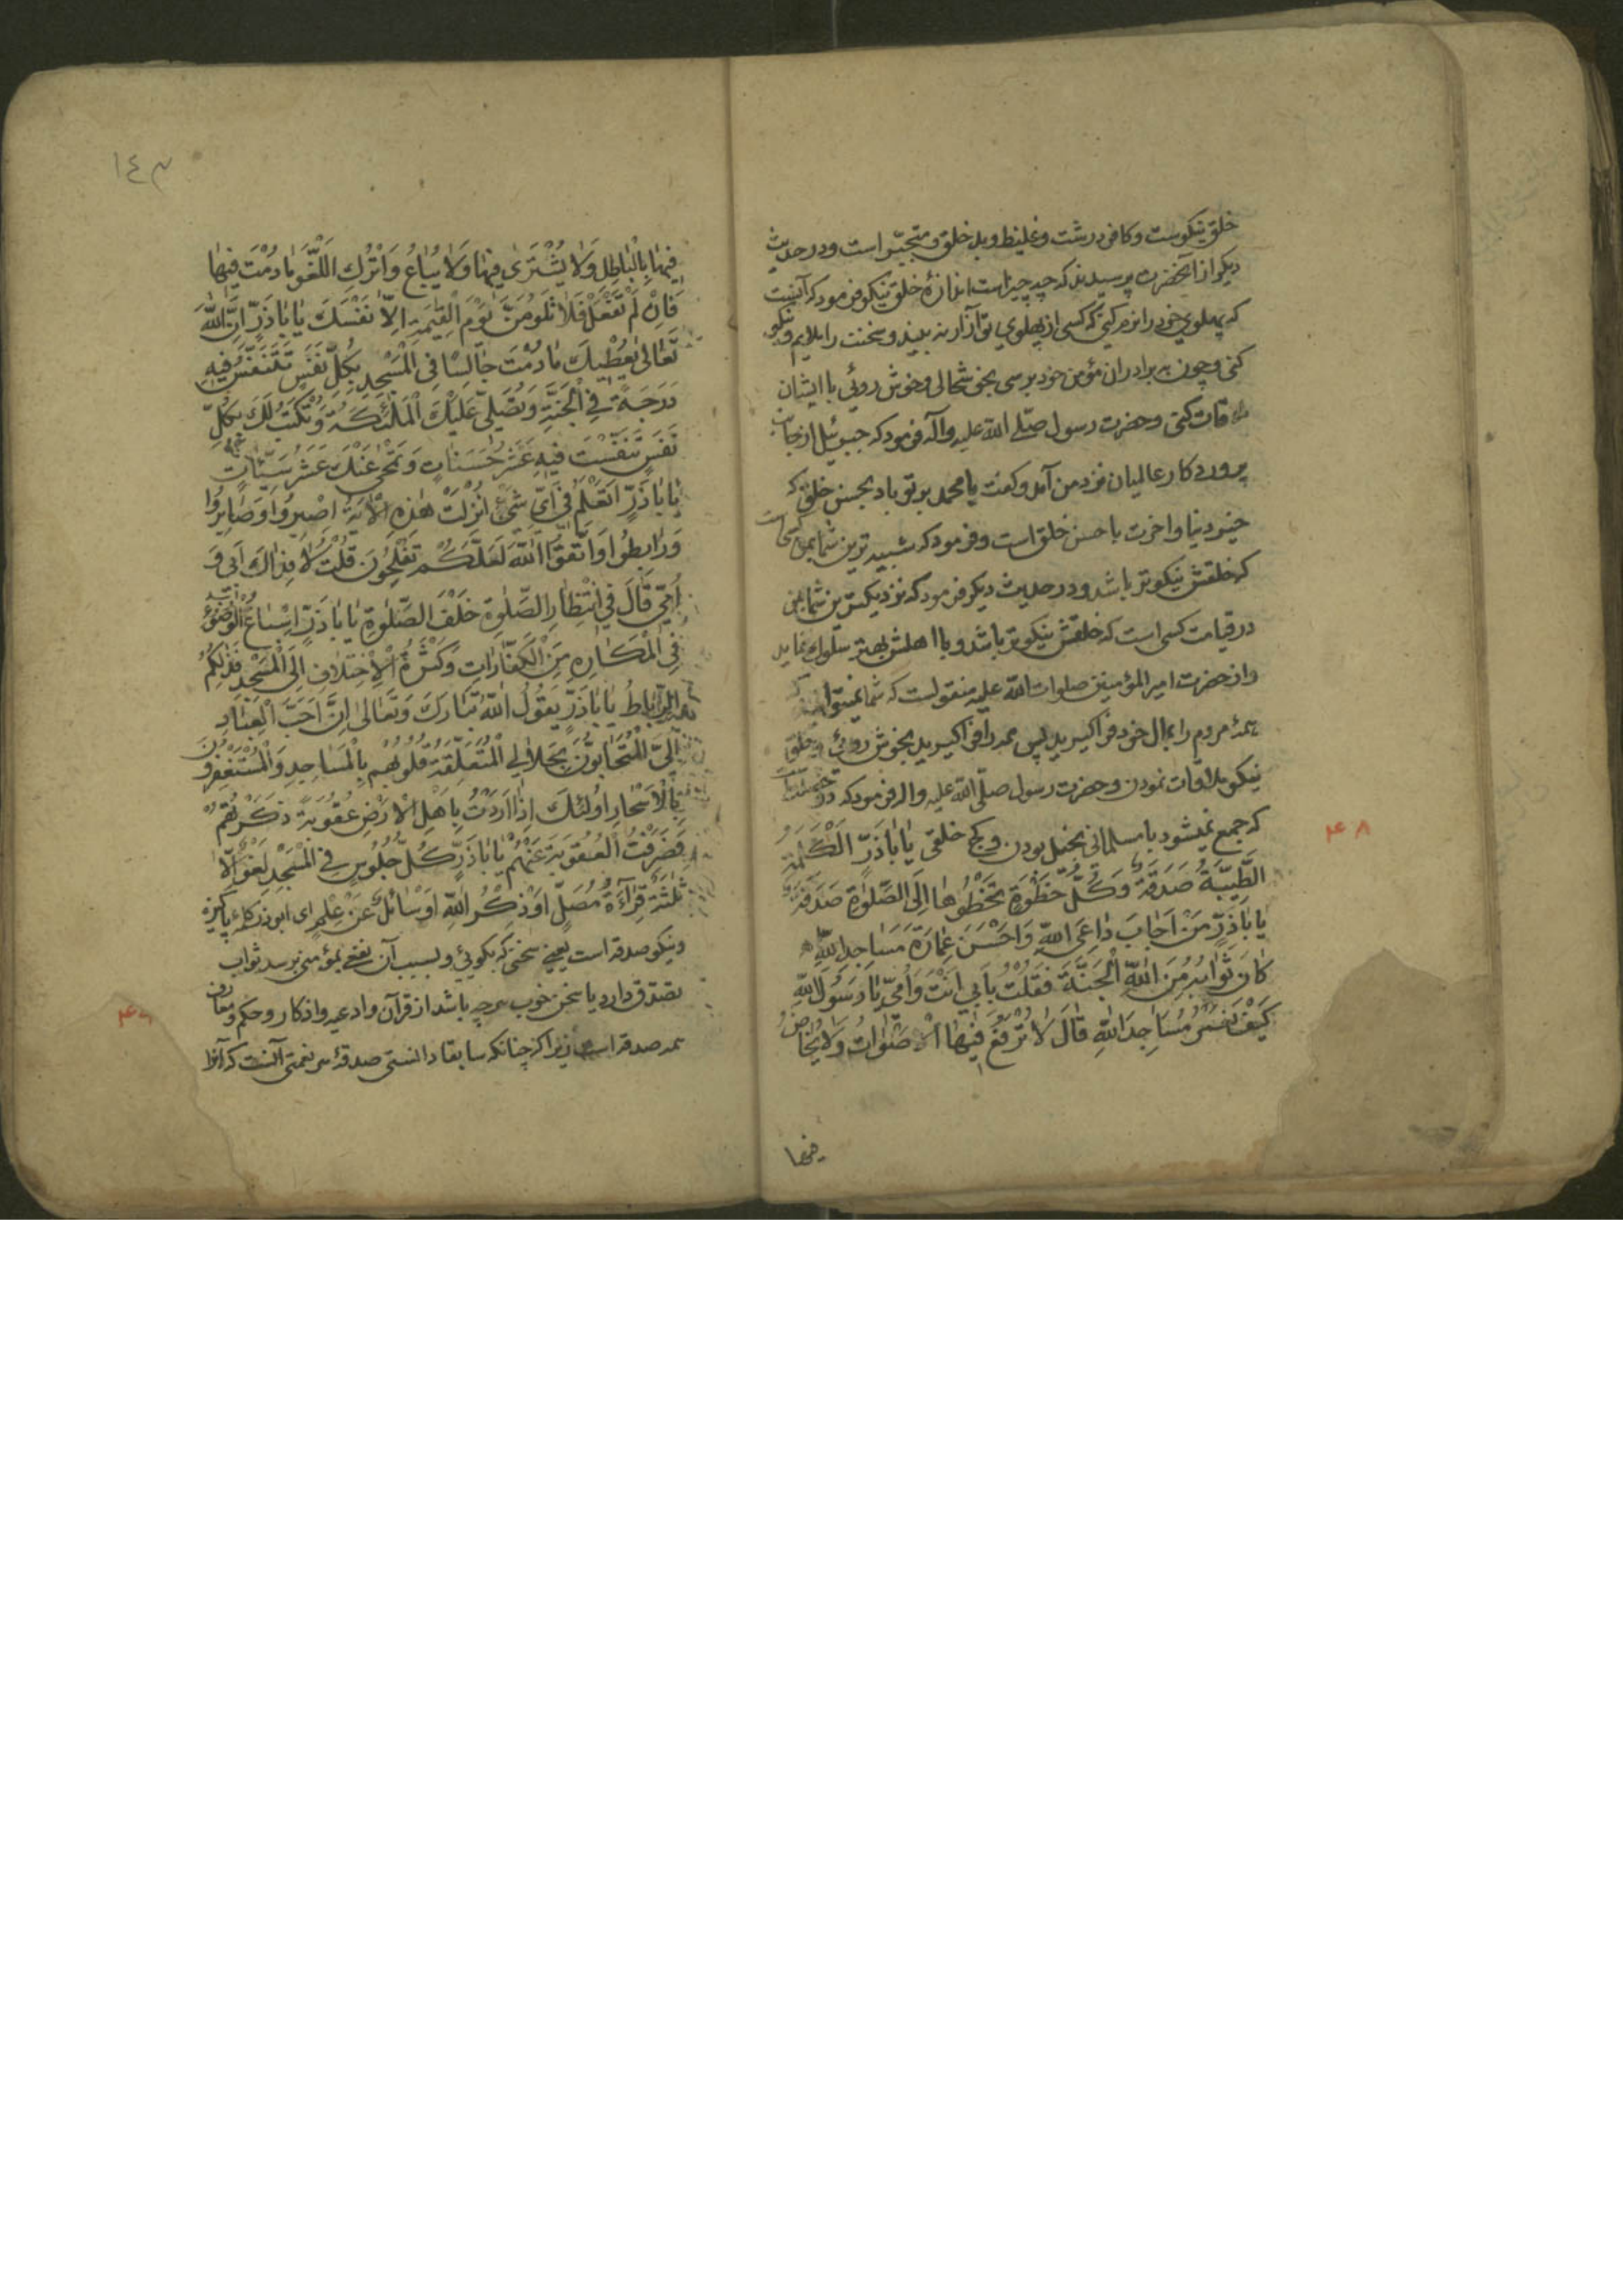 خلق نیکوست و کافر درشت و غلیظ و بد خلق و متجبّر است و در حدیث
دیگر از آنحضرت پرسیدند که چه چیز است اندازهٔ خلق نیکو فرمود که آنست
که پهلوی خود را نرم کنی که کسی از پهلوی تو آزار نه بیند و سخنت را ملایم و نیکو
کنی و چون به برادران مؤمن خود برسی بخوشحالی و خوش روئی با ایشان
ملاقات کنی و حضرت رسول صلّی اللّه علیه و آله فرمود که جبرئیل از جانب
پروردکار عالمیان نزد من آمد و کفت یا محمد بر تو باد بحسن خلق که
خیر دنیا و اخرت با حسن خلق است و فرمود که شبیه ترین شما بمن کسی است
که خلقش نیکوتر باشد و در حدیث دیکر فرمود که نزدیکترین شما بمن
در قیامت کسی است که خلقش نیکوتر باشد و با اهلش بهتر سلوک نماید
و از حضرت امیر المؤمنین صلوات اللّه علیه منقولست که شما نمیتوانید که
همهٔ مردم را بمال خود فرا کیرید پس همه را فرا کیرید بخوش روئی و بخلق
نیکو ملاقات نمودن و حضرت رسول صلّی اللّه علیه و اله فرمود که دو خصلت است
که جمع نمیشود با مسلمانی بخیل بودن و کج خلقی یٰا بٰاذَرّ اَلْکَلِمَةُ
الطَّیِّبَةُ صَدَقَةٌ وَ کُلُّ خُطْوَةٍ تَخْطُوهٰا اِلَی الصَّلٰوةِ صَدَقَةٌ
یٰا بٰاذَرٍّ مَنْ اَجٰابَ دٰاعِیَ اللّهِ وَ اَحْسَنَ عِمٰارَةَ مَسٰاجِدِ اللّهِ
کٰانَ ثَوٰابُهُ مِنَ اللّهِ الْجَنَّةَ فَقُلْتُ بِاَبِی اَنْتَ وَ اُمِّی یٰا رَسُولَ اللّهِ
کَیْفَ نَعْمُرُ مَسٰاجِدَ اللّهِ قٰالَ لٰا تُرْفَعُ فِیهٰا الْاَصْوٰاتُ وَ لٰا یُخٰاضُ
فیها
۴۸
١٤٣
فِیهٰا بِالْبٰاطِلِ وَ لٰا یُشْتَرٰی فِیهٰا وَ لٰا یُبٰاعُ وَ اتْرُكِ اللَّغْوَ مٰا دُمْتَ فِیهٰا
فَاِنْ لَمْ تَفْعَلْ فَلٰا تَلُومَنَّ یَوْمَ الْقِیٰمَةِ اِلّٰا نَفْسَكَ یٰا بٰاذَرٍّ اِنَّ اللّهَ
تَعٰالیٰ یُعْطِیكَ مٰا دُمْتَ جٰالِسًا فِی الْمَسْجِدِ بِکُلِّ نَفَسٍ تَتَنَفَّسُ فِیهِ
دَرَجَةً فِی الْجَنَّةِ وَ تُصَلِّی عَلَیْكَ الْمَلٰئِکَةُ وَ تُکْتَبُ لَكَ بِکُلِّ
نَفَسٍ تَنَفَّسْتَ فِیهِ عَشْرُ حَسَنٰاتٍ وَ تُمْحٰی عَنْكَ عَشْرُ سَیِّئٰاتٍ
یٰا بٰاذَرٍّ اَتَعْلَمُ فِی اَیِّ شَیْءٍ اُنْزِلَتْ هٰذِهِ الْاٰیَةُ اِصْبِرُوا وَ صٰابِرُوا
وَ رٰابِطُوا وَ اتَّقُوا اللّهَ لَعَلَّکُمْ تُفْلِحُونَ قُلْتُ لٰا فِدٰاكَ اَبِی وَ
اُمِّی قٰالَ فِی انْتِظٰارِ الصَّلٰوةِ خَلْفَ الصَّلٰوةِ یٰا بٰاذَرٍّ اِسْبٰاغُ الْوُضُوءِ
فِی الْمَکٰارِهِ مِنَ الْکَفّٰارٰاتِ وَ کَثْرَةُ الْاِخْتِلٰافِ اِلَی الْمَسْجِدِ فَذٰلِکُمُ
الرِّبٰاطُ یٰا بٰاذَرٍّ یَقُولُ اللّهُ تَبٰارَكَ وَ تَعٰالیٰ اِنَّ اَحَبَّ الْعِبٰادِ
اِلَیَّ الْمُتَحٰابُّونَ بِجَلٰالِی الْمُتَعَلِّقَةُ قُلُوبُهُم بِالْمَسٰاجِدِ وَ الْمُسْتَغْفِرُونَ
بِالْاَسْحٰارِ اُولٰئِكَ اِذٰا اَرَدْتُ بِاَهْلِ الْاَرْضِ عُقُوبَةً ذَکَرْتُهُمْ
فَصَرَفْتُ الْعُقُوبَةَ عَنْهُمْ یٰا بٰاذَرٍّ کُلُّ جُلُوسٍ فِی الْمَسْجِدِ لَغْوٌ اِلّٰا
ثَلٰثَةٌ قِرٰاءَةُ مُصَلٍّ اَوْ ذِکْرُ اللّهِ اَوْ سٰائِلٌ عَنْ عِلْمٍ ای ابوذر کلمهٔ پاکیزه
و نیکو صدقه است یعنی سخنی که بکوئی و بسبب آن نفعی بمؤمنی برسد ثواب
تصدق دارد یا سخن خوب هر چه باشد از قرآن و ادعیه و اذکار و حکم و معارف
همه صدقه است زیرا که چنانکه سابقا دانستی صدقهٔ هر نعمتی آنست که آنرا